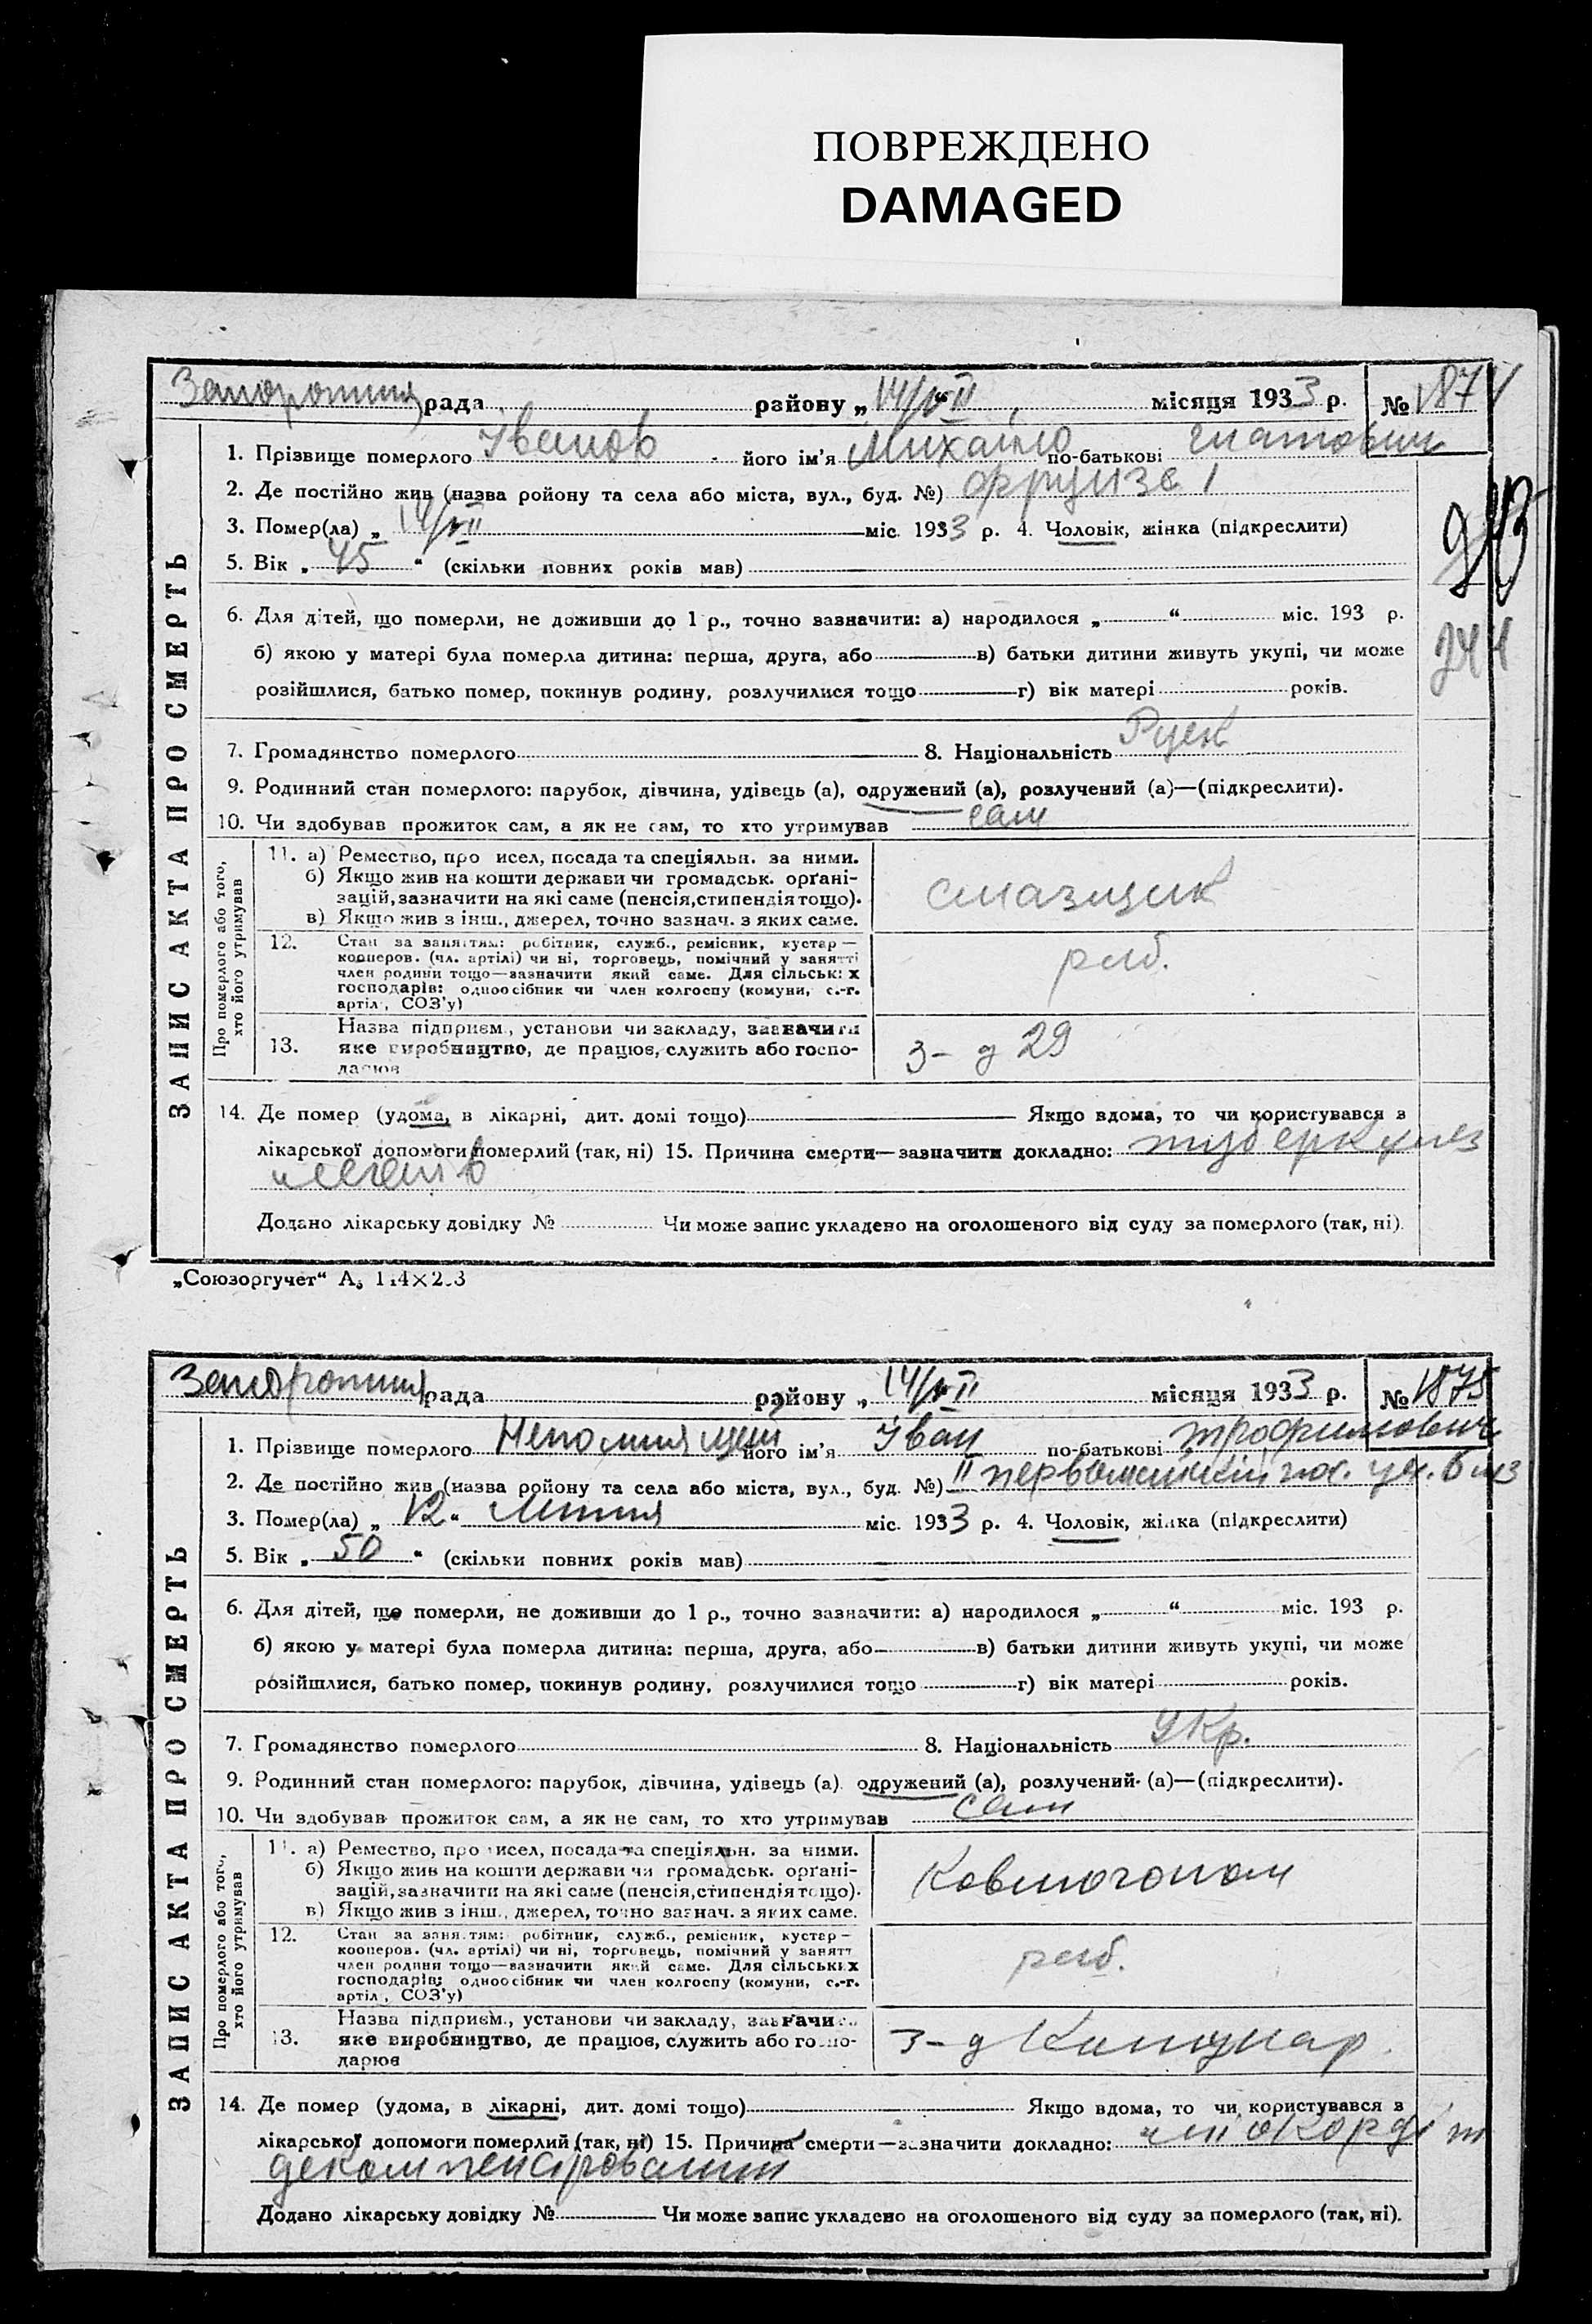 ПОВРЕЖДЕНО
DAMAGED
рада районy „14/VII місяця 1933 р. № 1874
ЗАПИС АКТА ПРО СМЕРТЬ
1. Прізвище померлого Іванов його ім'я Михайло по-батькові
2. Де постійно жив (назва ройону та села або міста, вул., буд. №) Фрунзе 1
3. Помер(ла) „ 14/VII міс. 1933 р. 4. Чоловік, жінка (підкреслити)
5. Вік „ 45 “ (скільки повних років мав)
6. Для дітей, що померли, не доживши до 1 р., точно зазначити: а) народилося „ “ міс. 193 р.
б) якою у матері була померла дитина: перша, друга, або в) батьки дитини живуть укупі, чи може
розійшлися, батько помер, покинув родину, розлучилися тощо г) вік матері років.
244
7. Громадянство померлого 8. Національність Руск
9. Родинний стан померлого: парубок, дівчина, удівець (а), одружений (а), розлучений (а)—(підкреслити).
10. Чи здобував прожиток сам, а як не сам, то хто утримував сам
Про померлого або того, хто його утримував
11. а) Ремество, про исел, посада та спеціяльн. за ними.
б) Якщо жив на кошти держави чи громадськ. орґані-
зацій, зазначити на які саме (пенсія, стипендія тощо).
в) Якщо жив з інш., джерел, точно зазнач. з яких саме.
смазщик
12. Стан за заняттям: робітник, служб., ремісник, кустар—
кооперов. (чл. артілі) чи ні, торговець, помічний у занятті
член родини тощо—зазначити який саме. Для сільськ х
господарів: одноосібник чи член колгоспу (комуни, с.-г.
артіл , СОЗ'у)
роб.
13. Назва підприєм., установи чи закладу, зазначити
яке виробництво, де працює, служить або госпо-
дарює
З-д 29
14. Де помер (удома, в лікарні, дит. домі тощо) Якщо вдома, то чи користувався з
лікарської допомоги померлий (так, ні) 15. Причина смерти—зазначити докладно: туберкульз
легенів
Додано лікарську довідку № Чи може запис укладено на оголошеного від суду за померлого (так, ні).
„Союзоргучет“
рада району „ 14/VII місяця 1933 р. № 1875
ЗАПИС АКТА ПРО СМЕРТЬ
1. Прізвище померлого Непомнящий його ім'я Іван по-батькові Трофимович
2. Де постійно жив (назва ройону та села або міста, вул., буд. №) II первомайский
3. Помер(ла) „ 12 “ липня міс. 1933 р. 4. Чоловік, жінка (підкреслити)
5. Вік „ 50 “ (скільки повних років мав)
6. Для дітей, що померли, не доживши до 1 р., точно зазначити: а) народилося „ “ міс. 193 р.
б) якою у матері була померла дитина: перша, друга, або в) батьки дитини живуть укупі, чи може
розійшлися, батько помер, покинув родину, розлучилися тощо г) вік матері років.
7. Громадянство померлого 8. Національність Укр.
9. Родинний стан померлого: парубок, дівчина, удівець (а) одружений (а), розлучений (а)—(підкреслити).
10. Чи здобував прожиток сам, а як не сам, то хто утримував сам
Про померлого або того, хто його утримував
11. а) Ремество, про исел, посада та спеціяльн. за ними.
б) Якщо жив на кошти держави чи громадськ. орґані-
зацій, зазначити на які саме (пенсія, стипендія тощо).
в) Якщо жив з інш., джерел, точно зазнач. з яких саме.
12. Стан за заняттям: робітник, служб., ремісник, кустар—
кооперов. (чл. артілі) чи ні, торговець, помічний у занятт
член родини тощо—зазначити який саме. Для сільських
господарів: одноосібник чи член колгоспу (комуни, с.-г.
артіл , СОЗ'у)
роб.
13. Назва підприєм., установи чи закладу, зазначи
яке виробництво, де працює, служить або госпо-
дарює
З-д Комунар.
14. Де помер (удома, в лікарні, дит. домі тощо) Якщо вдома, то чи користувався з
лікарської допомоги померлий (так, ні) 15. Причина смерти—зазначити докладно: міокордіт
декомпенсірований
Додано лікарську довідку № Чи може запис укладено на оголошеного від суду за померлого (так, ні).